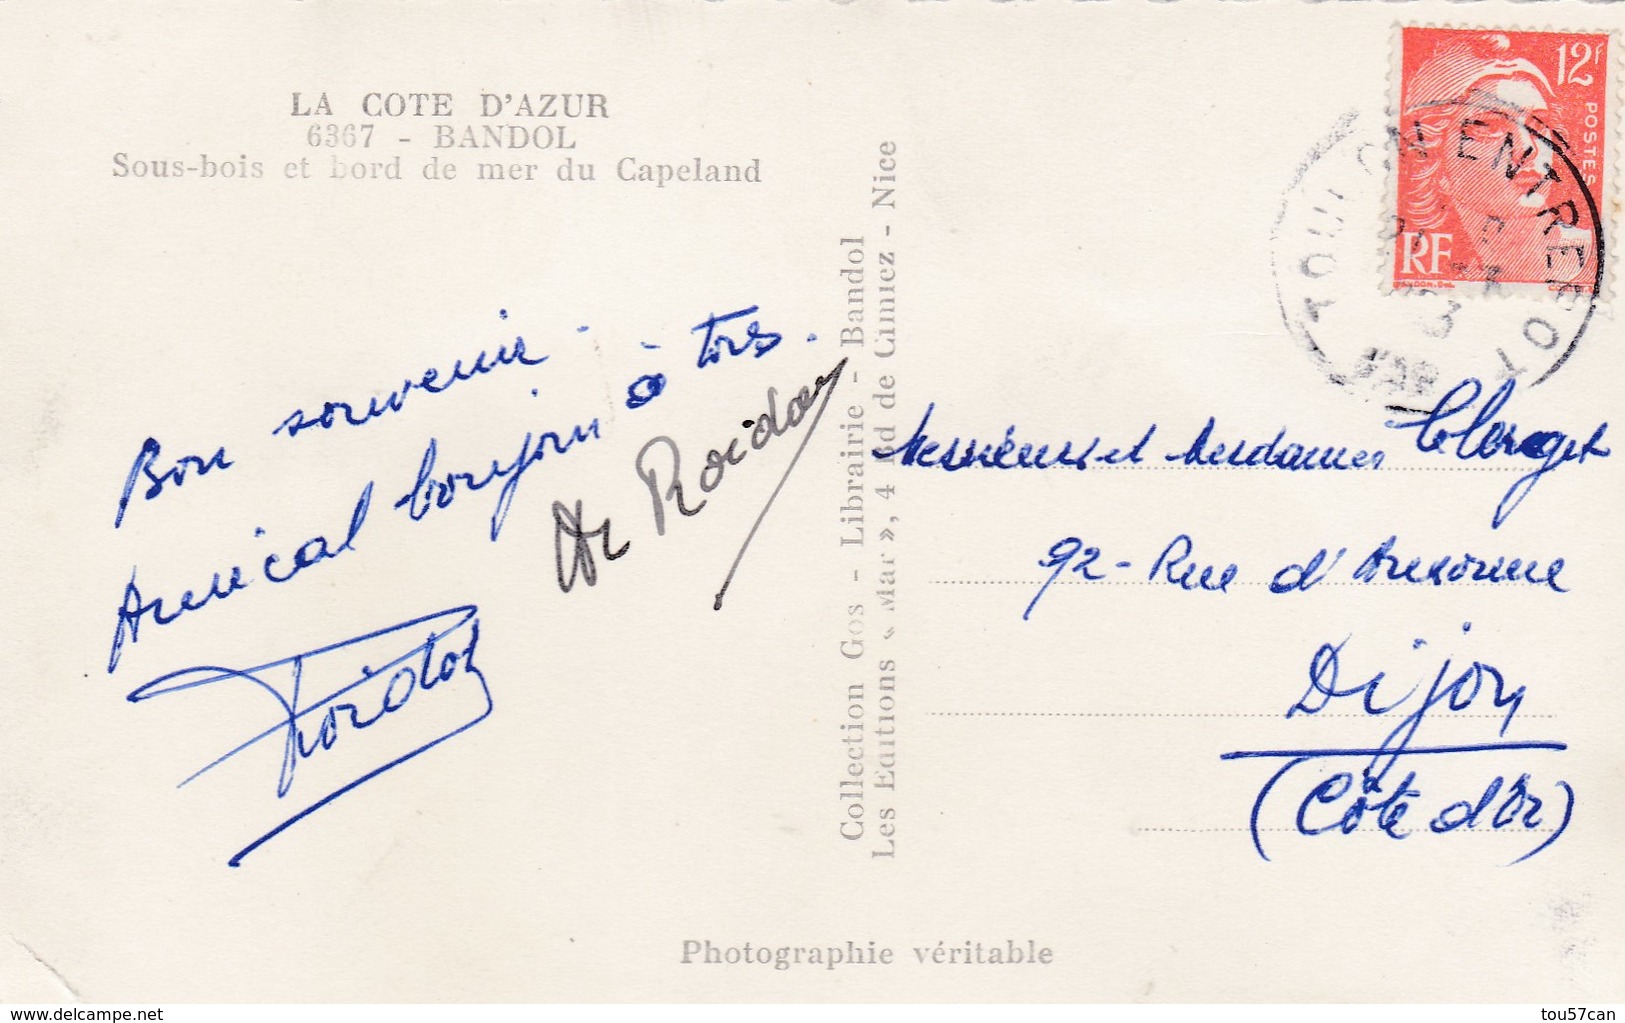 LA COTE D'AZUR
6367 - BANDOL
Sous-bois et bord de mer du Capeland
Bon souvenir.
Amical bonjour à tous.
Collection Gos - Librairie - Bandol
Les Editions « Mar », 4 Bd de Cimiez - Nice
12f
POSTES
RF
TOULON ENTREPOT
VAR
Messieurs et Mesdames
92 - Rue d'Auxonne
Dijon
(Côte d'Or)
Photographie véritable
delcampe.net
tou57can